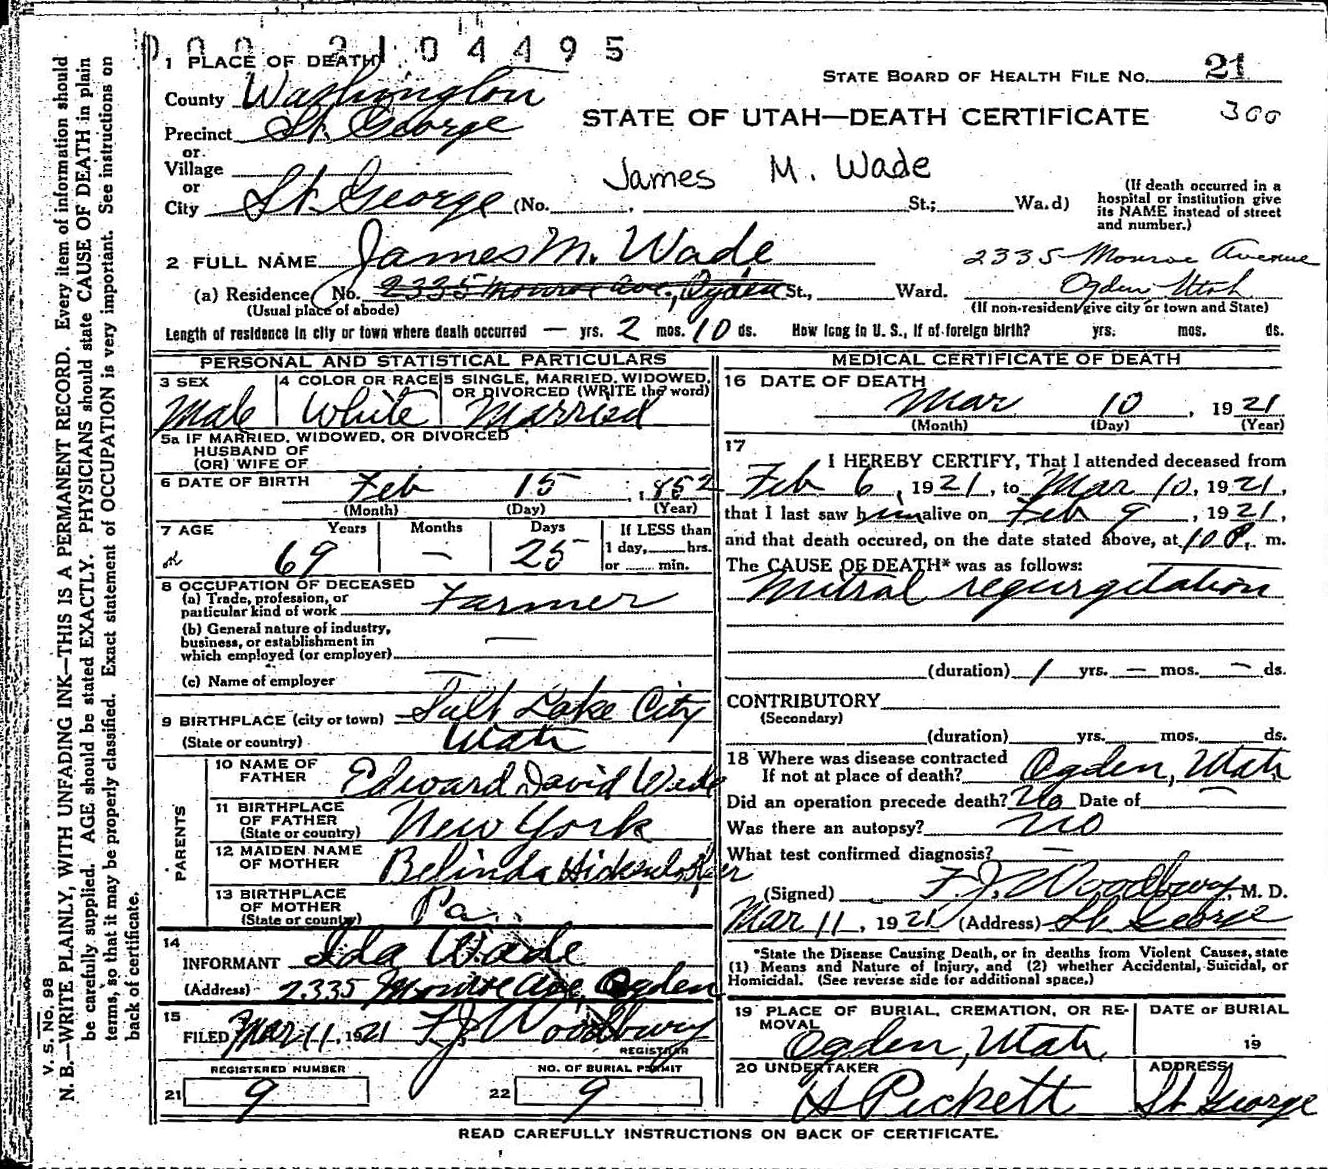 000 2104495
1 PLACE OF DEATH
STATE BOARD OF HEALTH FILE NO. 21
County Washington
STATE OF UTAH—DEATH CERTIFICATE 300
Precinct St. George
or
Village
James M. Wade
or
City St. George (No. , St.; Wa.d)
(If death occurred in a hospital or institution give its NAME instead of street and number.)
2 FULL NAME James M. Wade
2335 Monroe Avenue
(a) Residence No. 2335 Monroe Ave, Ogden St., Ward. Ogden Utah
(Usual place of abode) (If non-resident give city or town and State)
Length of residence in city or town where death occurred — yrs. 2 mos. 10 ds. How long in U. S., if of foreign birth? yrs. mos. ds.
PERSONAL AND STATISTICAL PARTICULARS
3 SEX
Male
4 COLOR OR RACE
White
5 SINGLE, MARRIED, WIDOWED, OR DIVORCED (WRITE the word)
Married
5a IF MARRIED, WIDOWED, OR DIVORCED
HUSBAND OF
(OR) WIFE OF
6 DATE OF BIRTH Feb 15, 1852
(Month) (Day) (Year)
7 AGE Years Months Days If LESS than
69 — 25 1 day, hrs.
or min.
8 OCCUPATION OF DECEASED
(a) Trade, profession, or
particular kind of work Farmer
(b) General nature of industry,
business, or establishment in
which employed (or employer) —
(c) Name of employer —
9 BIRTHPLACE (city or town) Salt Lake City
(State or country) Utah
PARENTS
10 NAME OF
FATHER Edward David Wade
11 BIRTHPLACE
OF FATHER
(State or country) New York
12 MAIDEN NAME
OF MOTHER Belinda
13 BIRTHPLACE
OF MOTHER
(State or country) Pa.
14
INFORMANT Ida Wade
(Address) 2335 Monroe Ave, Ogden
15
FILED Mar 11, 1921 F. J. Woodbury
REGISTRAR
REGISTERED NUMBER
21 9
NO. OF BURIAL PERMIT
22 9
MEDICAL CERTIFICATE OF DEATH
16 DATE OF DEATH
Mar 10, 1921
(Month) (Day) (Year)
17
I HEREBY CERTIFY, That I attended deceased from
Feb 6, 1921, to Mar 10, 1921,
that I last saw him alive on Feb 9, 1921,
and that death occured, on the date stated above, at 10 P. m.
The CAUSE OF DEATH* was as follows:
Mitral regurgitation
(duration) 1 yrs. — mos. — ds.
CONTRIBUTORY
(Secondary)
(duration) yrs. mos. ds.
18 Where was disease contracted
If not at place of death? Ogden, Utah
Did an operation precede death? No Date of —
Was there an autopsy? no
What test confirmed diagnosis? —
(Signed) F. J. Woodbury, M. D.
Mar 11, 1921 (Address) St George
*State the Disease Causing Death, or in deaths from Violent Causes, state
(1) Means and Nature of Injury, and (2) whether Accidental, Suicidal, or
Homicidal. (See reverse side for additional space.)
19 PLACE OF BURIAL, CREMATION, OR REMOVAL
Ogden, Utah
DATE OF BURIAL
19
20 UNDERTAKER
Pickett
ADDRESS
St George
READ CAREFULLY INSTRUCTIONS ON BACK OF CERTIFICATE.
V. S. No. 98
N. B.—WRITE PLAINLY, WITH UNFADING INK—THIS IS A PERMANENT RECORD. Every item of information should
be carefully supplied. AGE should be stated EXACTLY. PHYSICIANS should state CAUSE OF DEATH in plain
terms, so that it may be properly classified. Exact statement of OCCUPATION is very important. See instructions on
back of certificate.